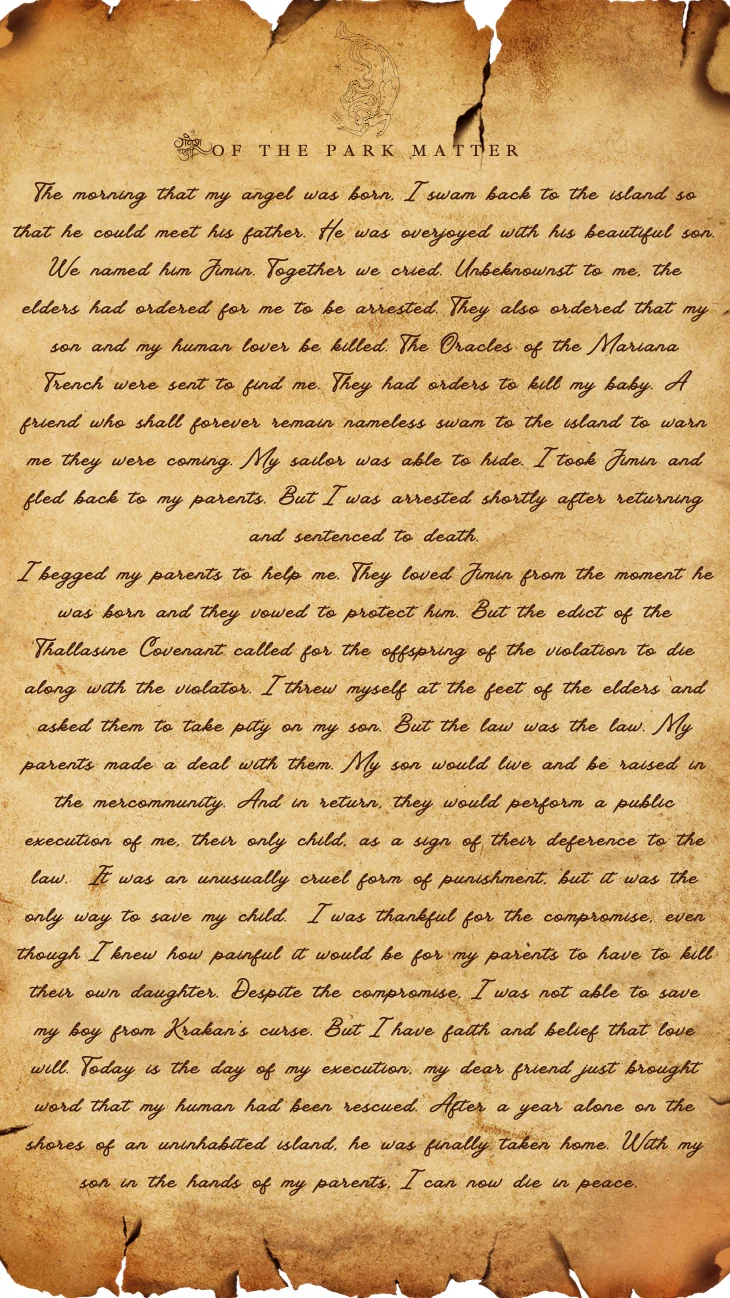 OF THE PARK MATTER
The morning that my angel was born, I swam back to the island so
that he could meet his father. He was overjoyed with his beautiful son.
We named him Jimin. Together we cried. Unbeknownst to me, the
elders had ordered for me to be arrested. They also ordered that my
son and my human lover be killed. The Oracles of the Mariana
Trench were sent to find me. They had orders to kill my baby. A
friend who shall forever remain nameless swam to the island to warn
me they were coming. My sailor was able to hide. I took Jimin and
fled back to my parents. But I was arrested shortly after returning
and sentenced to death.
I begged my parents to help me. They loved Jimin from the moment he
was born and they vowed to protect him. But the edict of the
Thallasine Covenant called for the offspring of the violation to die
along with the violator. I threw myself at the feet of the elders and
asked them to take pity on my son. But the law was the law. My
parents made a deal with them. My son would live and be raised in
the mercommunity. And in return, they would perform a public
execution of me, their only child, as a sign of their deference to the
law. It was an unusually cruel form of punishment, but it was the
only way to save my child. I was thankful for the compromise, even
though I knew how painful it would be for my parents to have to kill
their own daughter. Despite the compromise, I was not able to save
my boy from Krakan's curse. But I have faith and belief that love
will. Today is the day of my execution, my dear friend just brought
word that my human had been rescued. After a year alone on the
shores of an uninhabited island, he was finally taken home. With my
son in the hands of my parents, I can now die in peace.